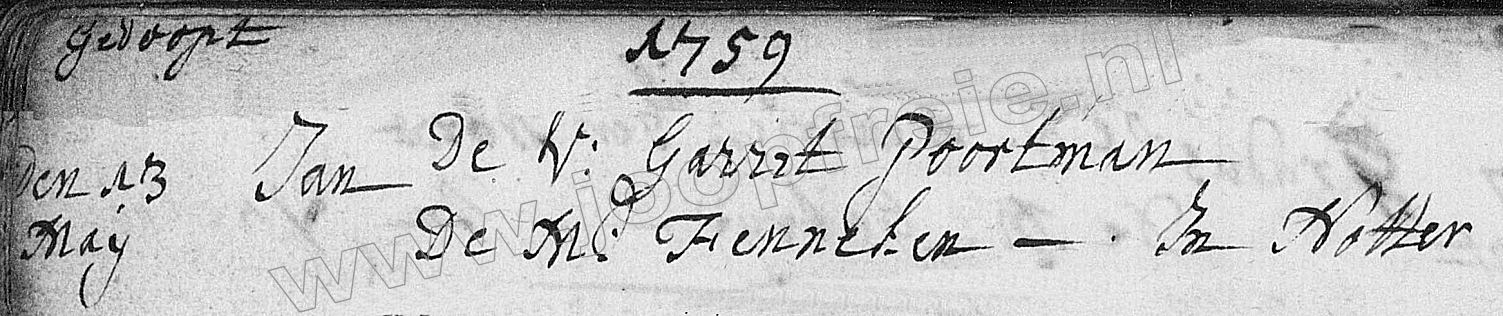 Gedoopt
1759
Den 13 Jan De V: Garrit Poortman
May De M: Fenneken — . In Notter
www.joopfreie.nl